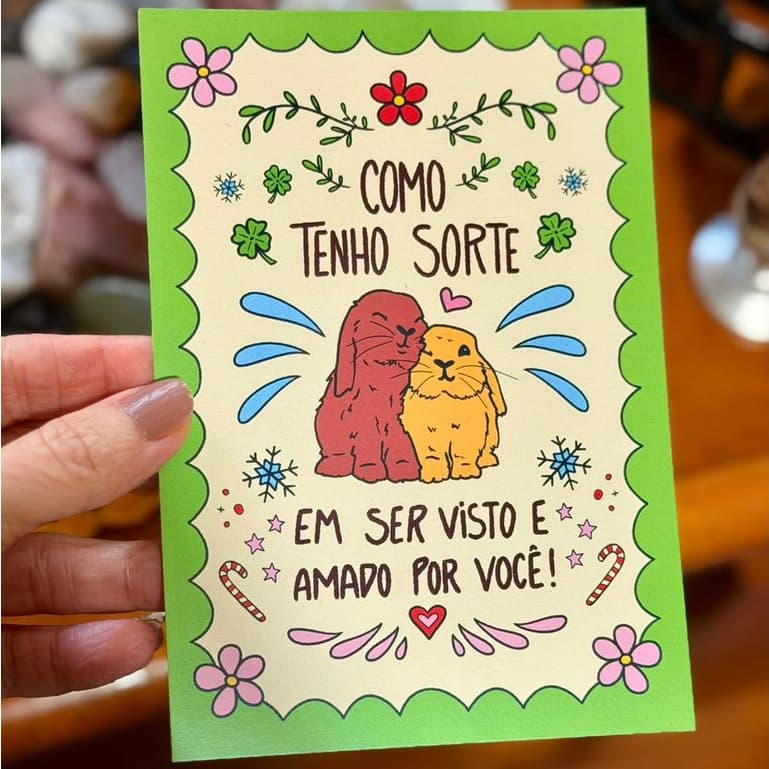 COMO
TENHO SORTE
EM SER VISTO E
AMADO POR VOCÊ!